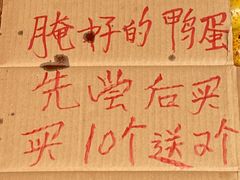 腌好的鸭蛋
先尝后买
买10个送2个